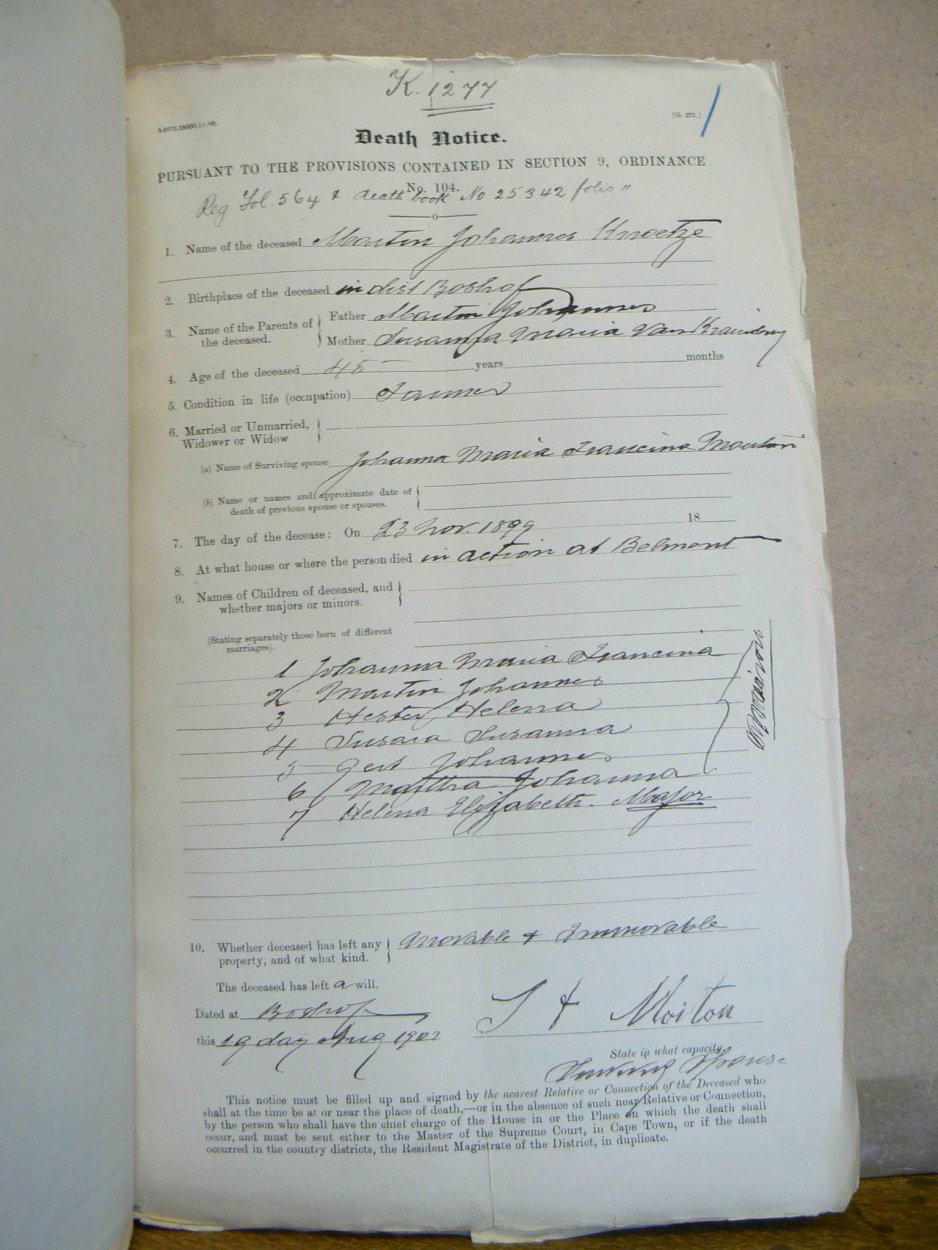 K. 1277
(G. 271.)
Death Notice.
PURSUANT TO THE PROVISIONS CONTAINED IN SECTION 9, ORDINANCE
No. 104.
Reg Fol. 564 & death book No 25342 folio "
1. Name of the deceased Martin Johannes Knoetze
2. Birthplace of the deceased in dist Boshof
3. Name of the Parents of the deceased. Father Martin Johannes
Mother Susanna Maria Van
4. Age of the deceased 45 years months
5. Condition in life (occupation) Farmer
6. Married or Unmarried,
Widower or Widow
(a) Name of Surviving spouse Johanna Maria Francina Mouton
(b) Name or names and approximate date of
death of previous spouse or spouses.
7. The day of the decease: On 23 Nov. 1899 18
8. At what house or where the person died in action at Belmont
9. Names of Children of deceased, and
whether majors or minors.
(Stating separately those born of different
marriages).
1 Johanna Maria Francina
2 Martin Johannes
3 Hester Helena
4 Susara Susanna
5 Gert Johannes
6 Martha Johanna
7 Helena Elizabeth. Major
minors
10. Whether deceased has left any
property, and of what kind. Movable & Immovable
The deceased has left a will.
Dated at Boshof
this 19 day Aug 1902
State in what capacity.
Spouse
This notice must be filled up and signed by the nearest Relative or Connection of the Deceased who
shall at the time be at or near the place of death,—or in the absence of such near Relative or Connection,
by the person who shall have the chief charge of the House in or the Place on which the death shall
occur, and must be sent either to the Master of the Supreme Court, in Cape Town, or if the death
occurred in the country districts, the Resident Magistrate of the District, in duplicate.